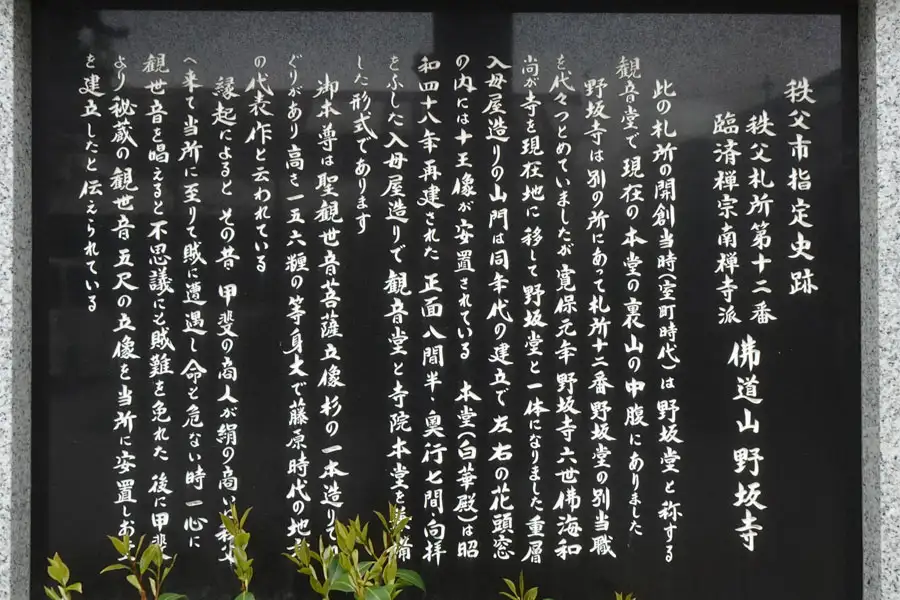 秩父市指定史跡
秩父札所第十二番
臨済禅宗南禅寺派
佛道山野坂寺
此の札所の開創当時(室町時代)は野坂堂と称する
観音堂で現在の本堂の裏山の中腹にありました
野坂寺は別の所にあって札所十二番野坂堂の別当職
を代々つとめていましたが寛保元年野坂寺六世佛海和
尚が寺を現在地に移して野坂堂と一体になりました重層
入母屋造りの山門は同年代の建立で左右の花頭窓
の内には十王像が安置されている 本堂(白華殿)は昭
和四十八年再建された 正面八間半・奥行七間・向拝
をふした入母屋造りで観音堂と寺院本堂を兼帯
した形式であります
御本尊は聖観世音菩薩立像杉の一本造りで
ぐりがあり高さ一五六糎の等身大で藤原時代の地
の代表作と云われている
縁起によると その昔 甲斐の商人が絹の商い秩父
へ来て当所に至りて賊に遭遇し命も危ない時一心に
観世音を唱えると不思議にも賊難を免れた 後に甲斐
より秘蔵の観世音五尺の立像を当所に安置しお
を建立したと伝えられている